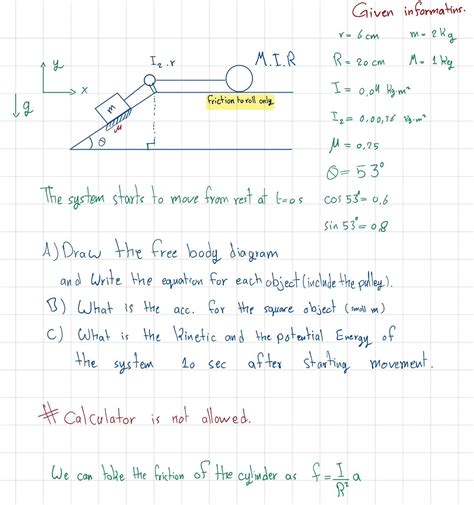 Given informations.
r = 6 cm m = 2 kg
R = 20 cm M = 1 kg
I = 0,04 kg·m²
I₂ = 0,0036 kg·m²
μ = 0,25
θ = 53°
cos 53° = 0,6
sin 53° = 0,8
y
x
g
I₂, r
M, I, R
friction to roll only
m
μ
θ
The system starts to move from rest at t=0s
A) Draw the free body diagram
and Write the equation for each object (include the pulley).
B) What is the acc. for the square object (small m)
C) What is the Kinetic and the potential Energy of
the system 10 sec after starting movement.
# Calculator is not allowed.
We can take the friction of the cylinder as f = I/R² a